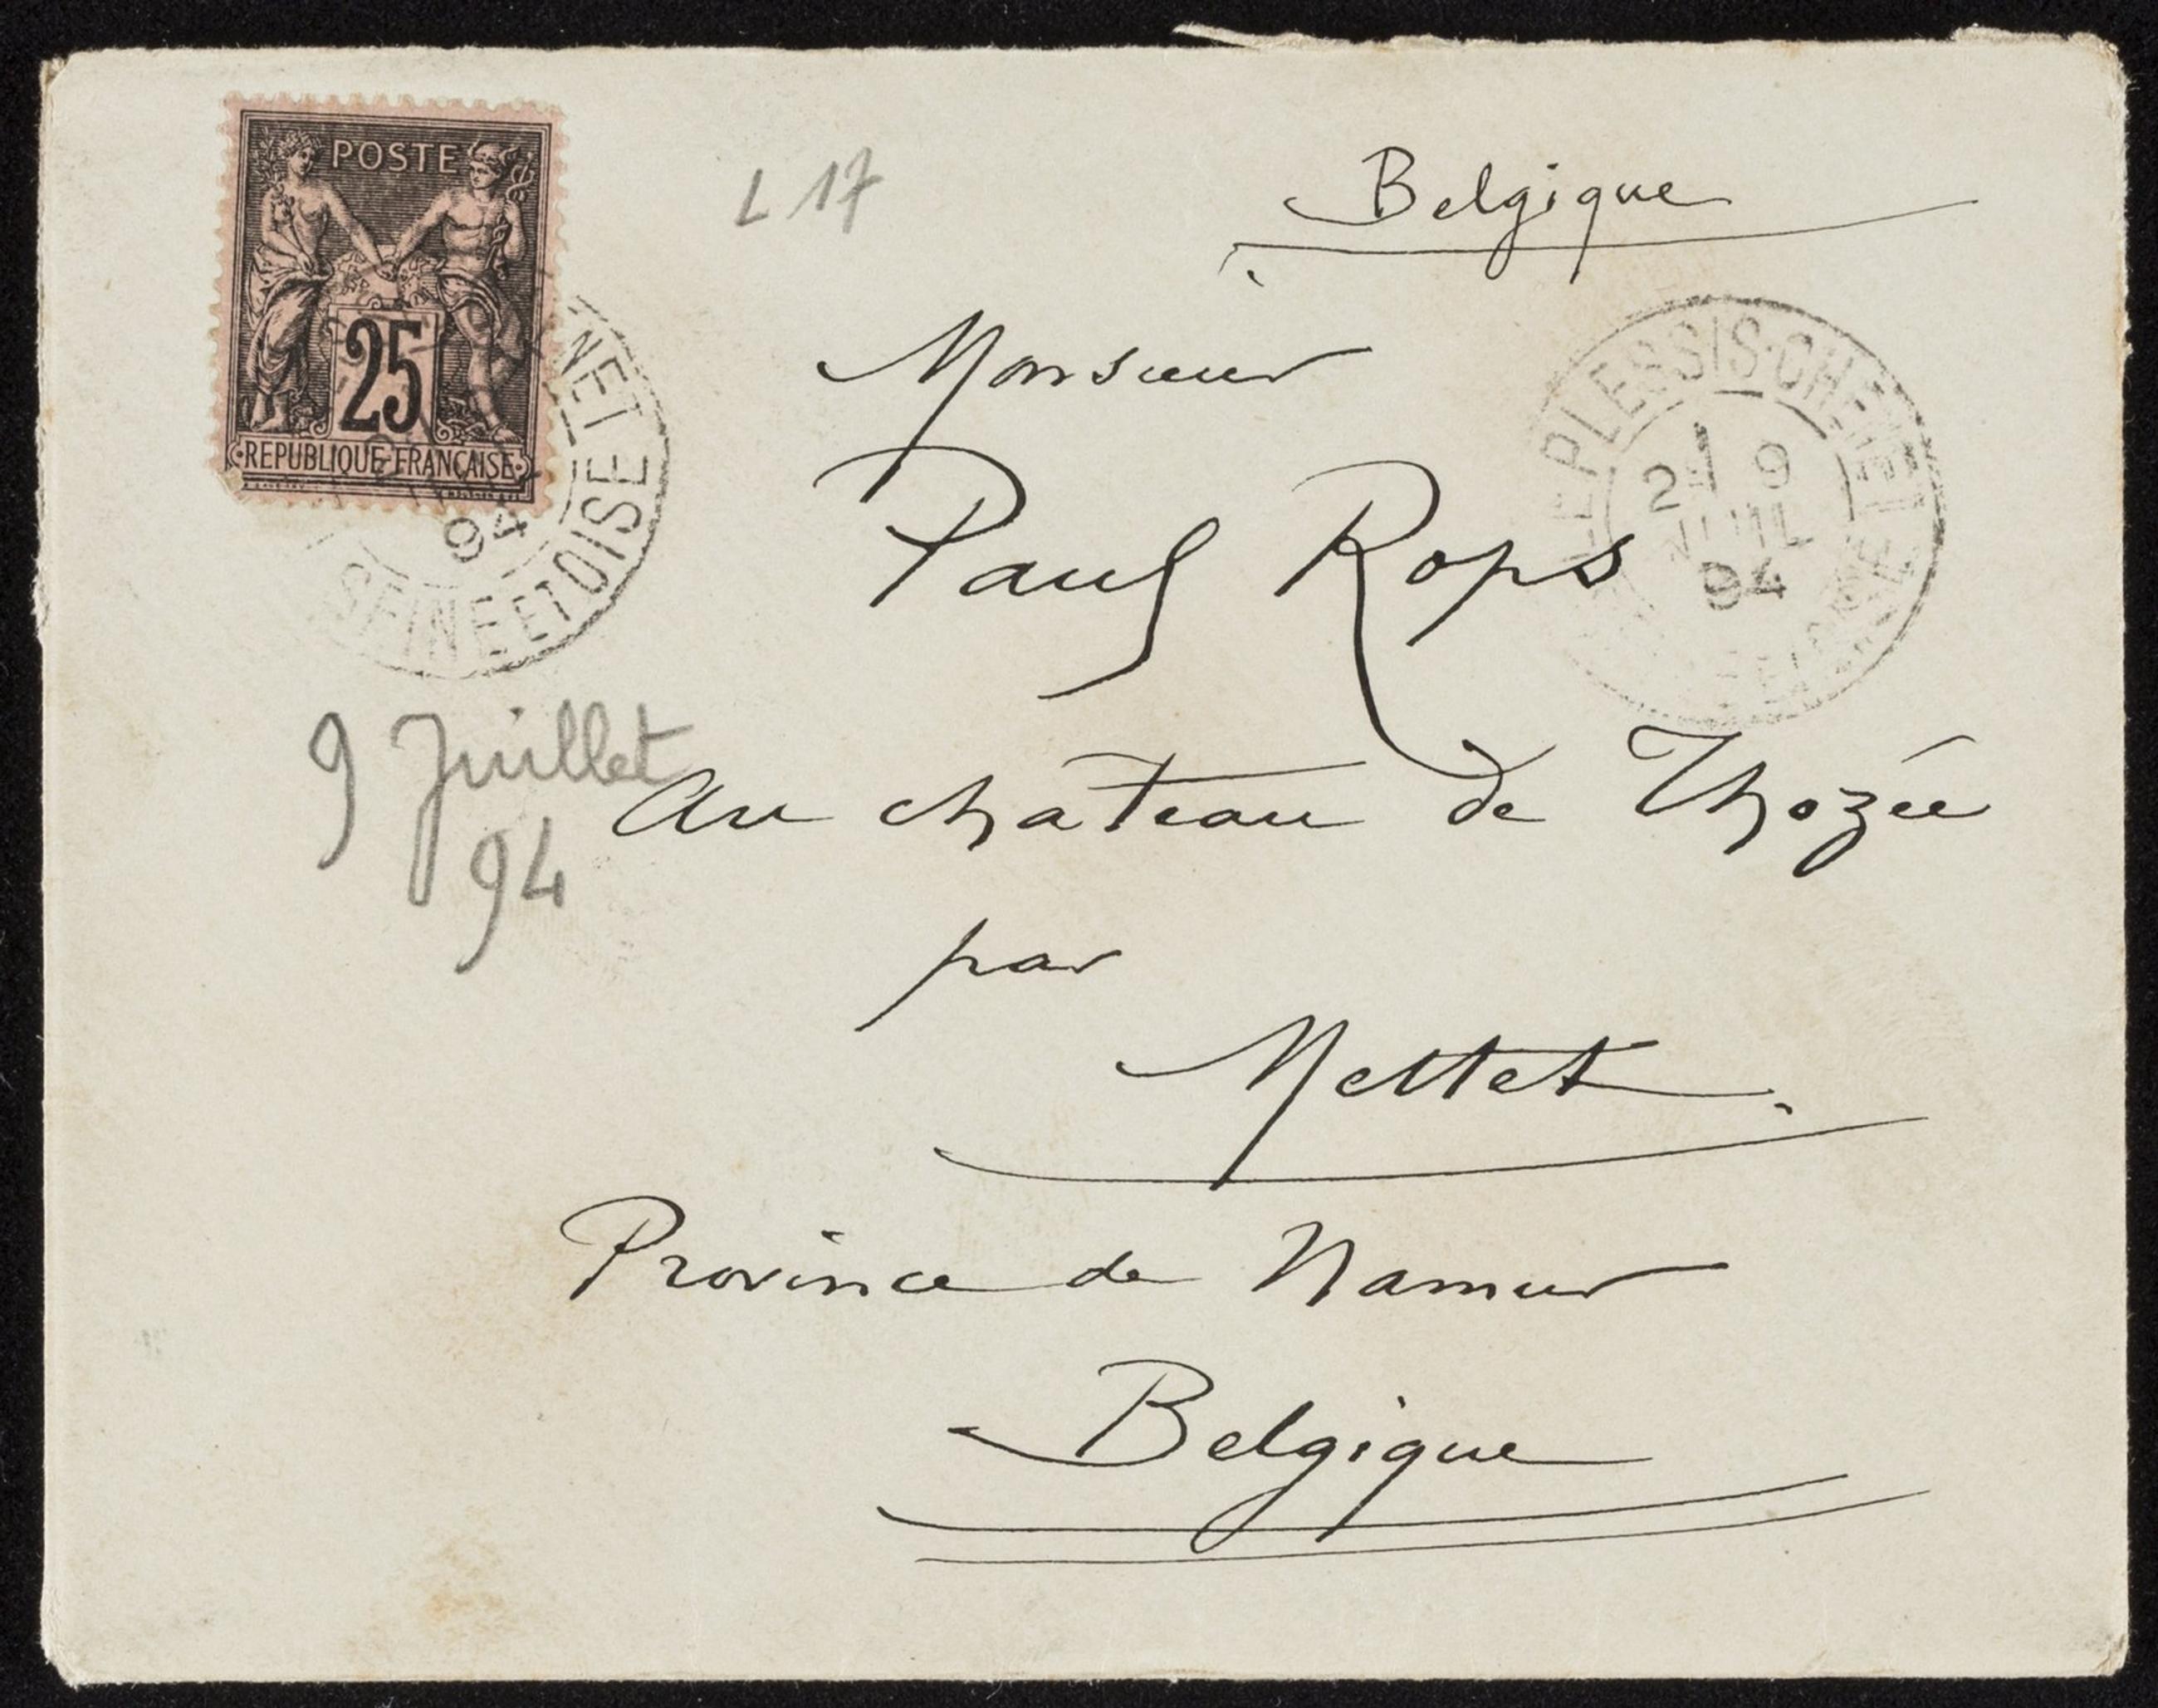 POSTE
25
REPUBLIQUE FRANÇAISE
NET
SEINE ET OISE
94
L 17
Belgique
LE PLESSIS-CHENET
9
JUIL
94
Monsieur
Paul Rops
9 Juillet
94
Au château de Thozée
par
Mettet.
Province de Namur
Belgique